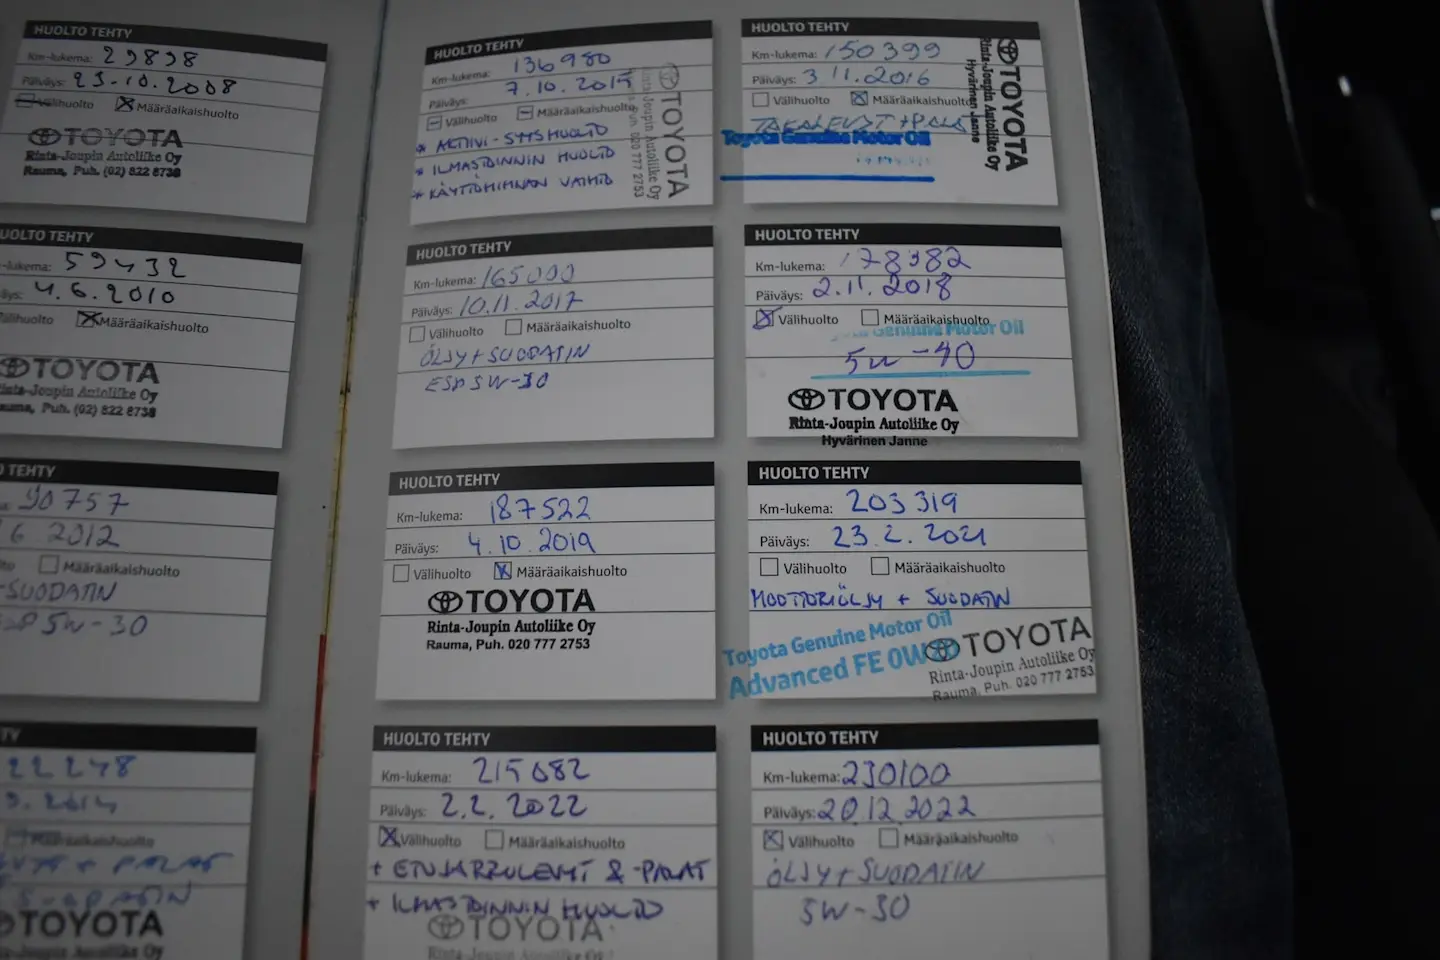 HUOLTO TEHTY
Km-lukema: 29898
Päiväys: 23.10.2008
Välihuolto Määräaikaishuolto
TOYOTA
Rinta-Joupin Autoliike Oy
Rauma, Puh. (02) 822 8738
UOLTO TEHTY
-lukema: 59432
äys: 4.6.2010
älihuolto Määräaikaishuolto
TOYOTA
inta-Joupin Autoliike Oy
auma, Puh. (02) 822 8738
TEHTY
90757
6 2012
to Määräaikaishuolto
-SUODATIN
5W-30
TY
22248
Määräaikaishuolto
+ PALAT
TOYOTA
Joupin Autoliike Oy
HUOLTO TEHTY
Km-lukema: 136980
Päiväys: 7.10.2015
Välihuolto Määräaikaishuolto
* AKTIIVI-SYYSHUOLTO
* ILMASTOINNIN HUOLTO
* KÄYTTÖHIHNAN VAIHTO
TOYOTA
Rinta-Joupin Autoliike Oy
Puh. 020 777 2753
HUOLTO TEHTY
Km-lukema: 150399
Päiväys: 3 11.2016
Välihuolto Määräaikaishuolto
Toyota Genuine Motor Oil
TOYOTA
Rinta-Joupin Autoliike Oy
Hyvärinen Janne
HUOLTO TEHTY
Km-lukema: 165000
Päiväys: 10.11.2017
Välihuolto Määräaikaishuolto
ÖLJY + SUODATIN
ESP 5W-30
HUOLTO TEHTY
Km-lukema: 178382
Päiväys: 2.11.2018
Välihuolto Määräaikaishuolto
Genuine Motor Oil
5W-40
TOYOTA
Rinta-Joupin Autoliike Oy
Hyvärinen Janne
HUOLTO TEHTY
Km-lukema: 187522
Päiväys: 4.10.2019
Välihuolto Määräaikaishuolto
TOYOTA
Rinta-Joupin Autoliike Oy
Rauma, Puh. 020 777 2753
HUOLTO TEHTY
Km-lukema: 203319
Päiväys: 23.2.2021
Välihuolto Määräaikaishuolto
MOOTTORIÖLJY + SUODATIN
Toyota Genuine Motor Oil
Advanced FE 0W
TOYOTA
Rinta-Joupin Autoliike Oy
Rauma, Puh. 020 777 2753
HUOLTO TEHTY
Km-lukema: 215082
Päiväys: 2.2.2022
Välihuolto Määräaikaishuolto
+ ETUJARRULEVYT & -PALAT
+ ILMASTOINNIN HUOLTO
TOYOTA
Rinta-Joupin Autoliike Oy
HUOLTO TEHTY
Km-lukema: 230100
Päiväys: 20.12.2022
Välihuolto Määräaikaishuolto
ÖLJY + SUODATIN
5W-30